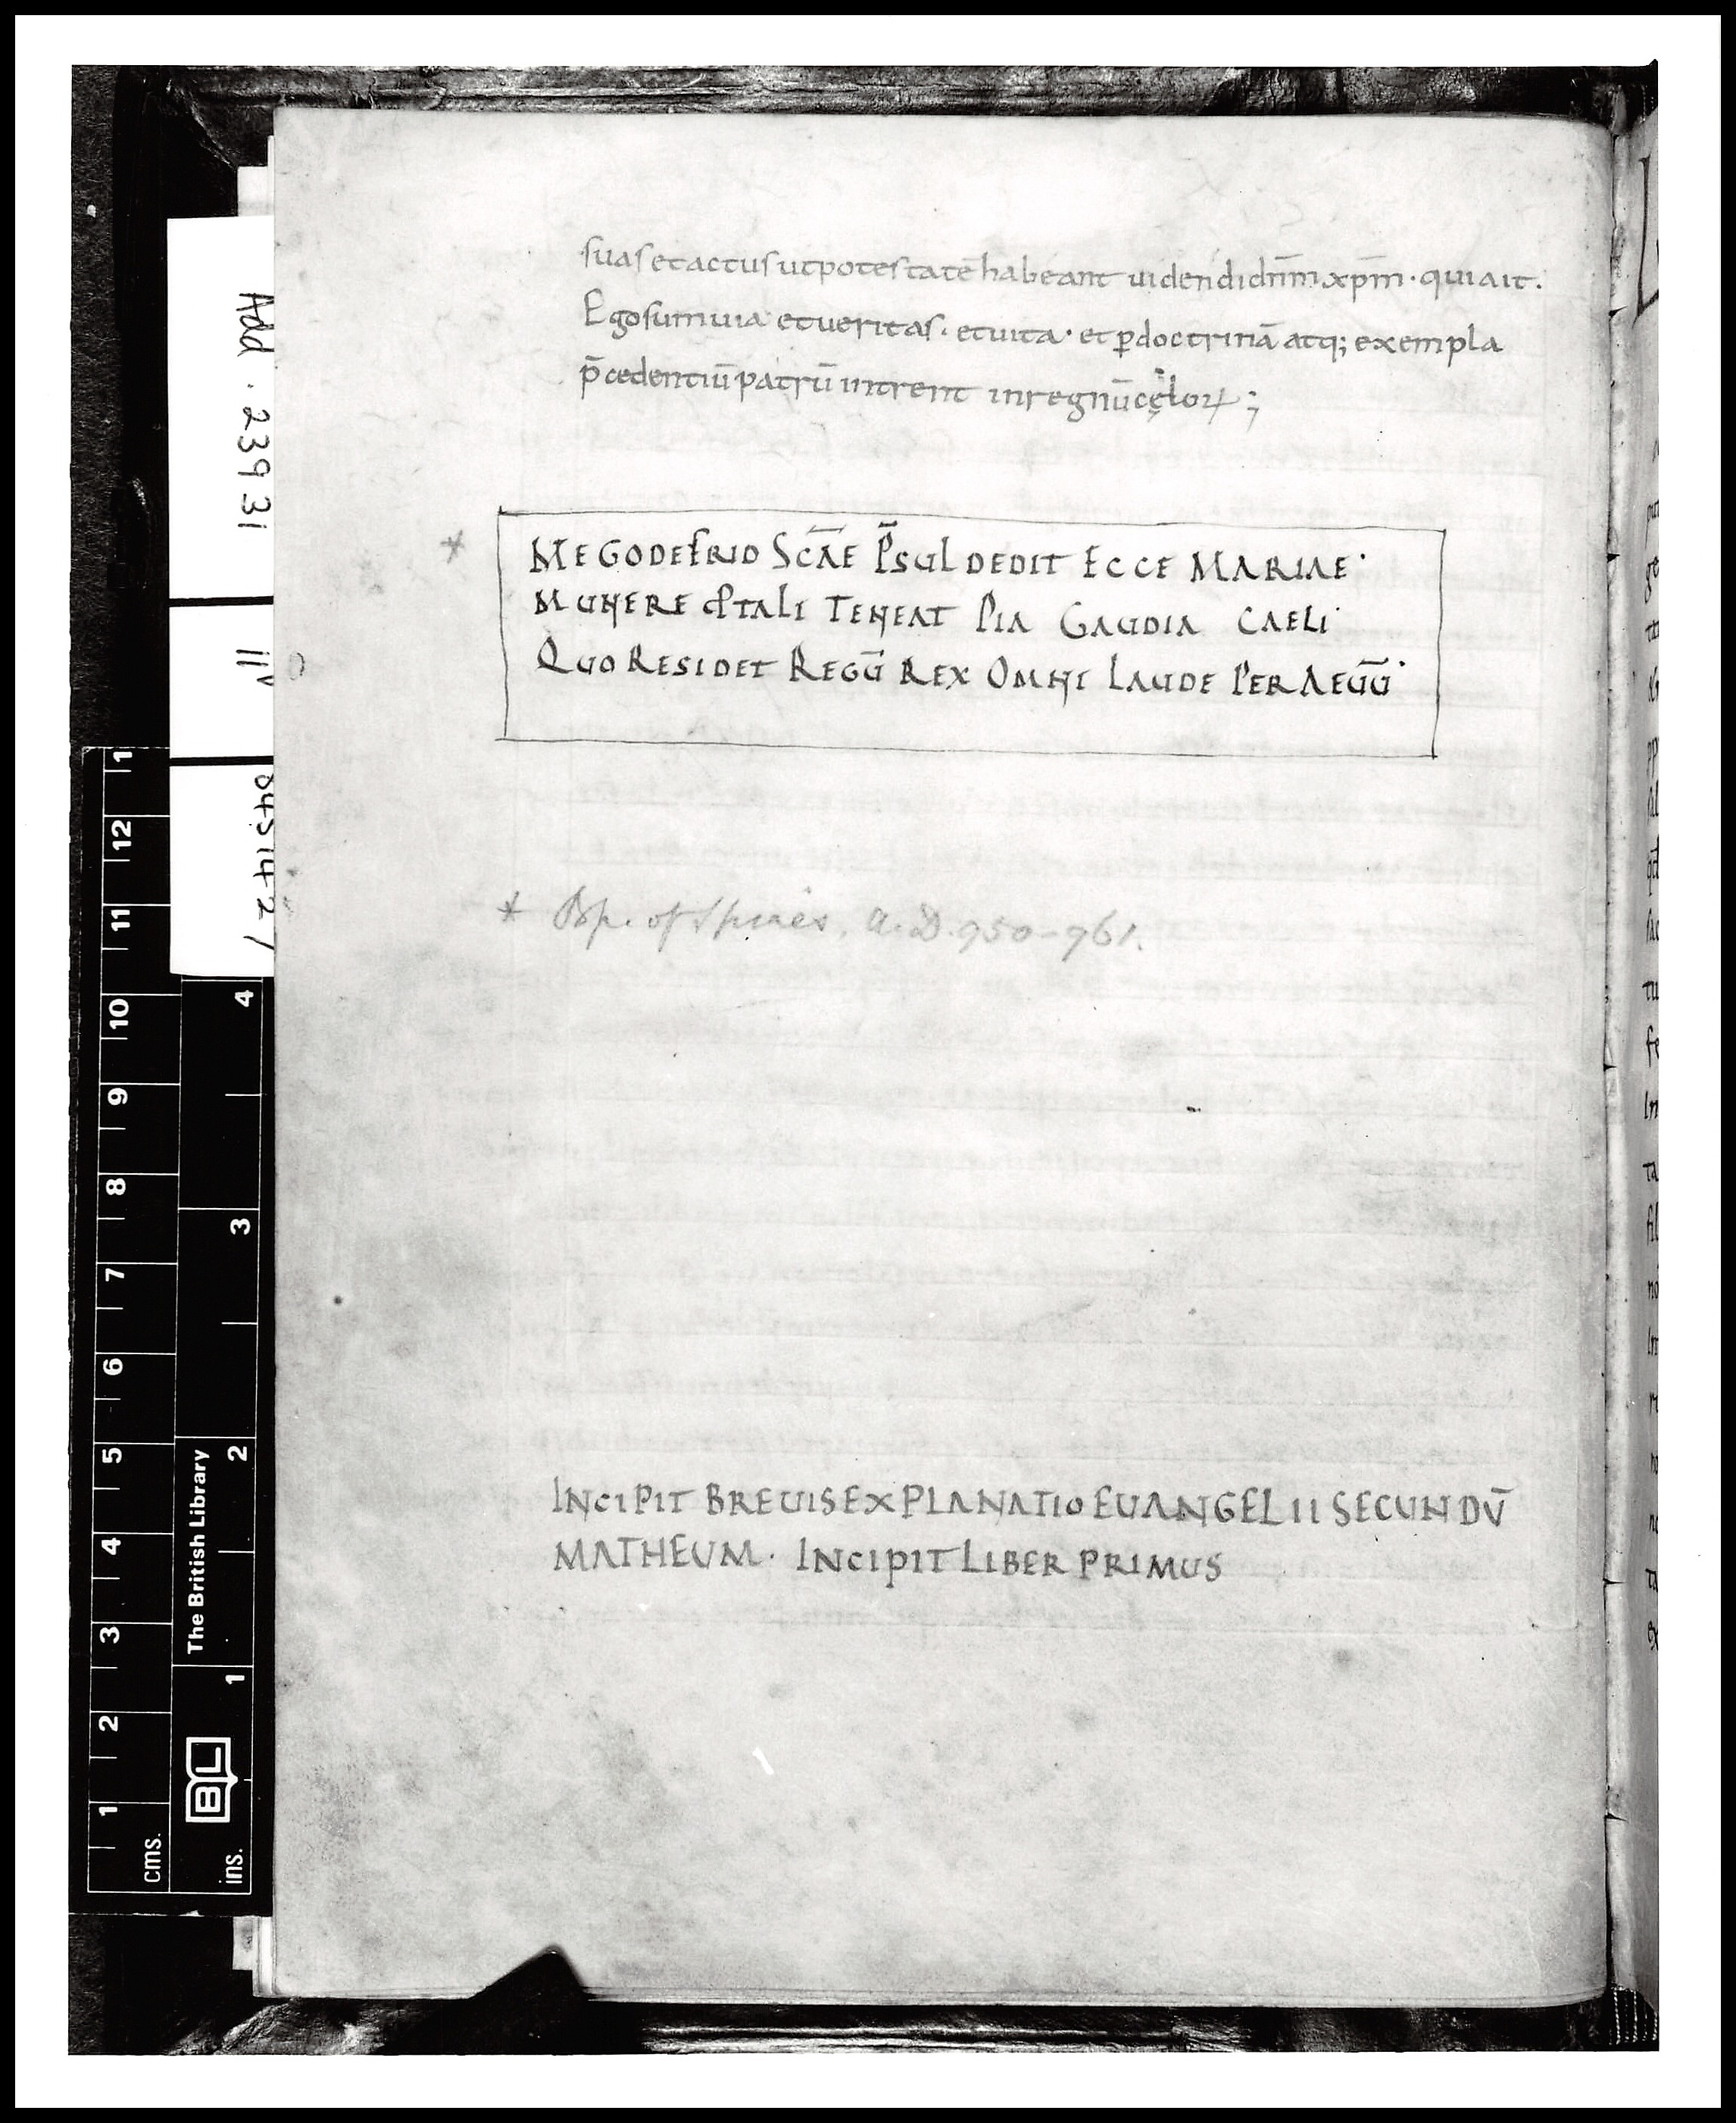 suas et actus ut potestatē habeant uidendi dn̄m xp̄m · qui ait ·
Ego sum uia et ueritas · et uita · et ꝑ doctrinā atq; exempla
p̄cedentiū patrū intrent in regnū cęloꝝ ;
* ME GODEFRID SCĀE P̄SUL DEDIT ECCE MARIAE ·
MUNERE TALI TENEAT PIA GAUDIA CAELI ·
QUO RESIDET REGŪ REX OMNI LAUDE PER AEUŪ ·
* Bp. of Spires, A.D. 950-961.
INCIPIT BREUIS EXPLANATIO EUANGELII SECUNDŪ
MATHEUM · INCIPIT LIBER PRIMUS
Add. 23931
11v
845142 /
1
12
11
10
9
8
7
6
5
4
3
2
1
cms.
4
3
2
1
ins.
The British Library
BL